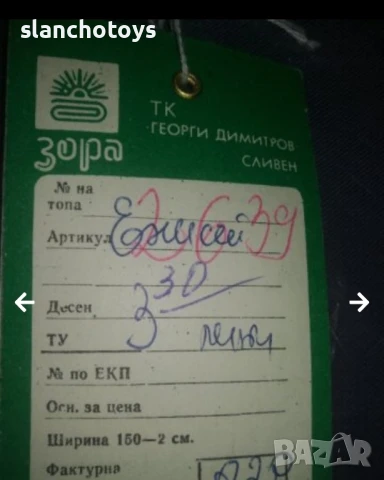 slanchotoys
ТК
"ГЕОРГИ ДИМИТРОВ
СЛИВЕН
зора
№ на
топа
2639
Артикул Енисей
3 30
Десен
ТУ
№ по ЕКП
Осн. за цена
Ширина 150—2 см.
Фактурна
BAZAR